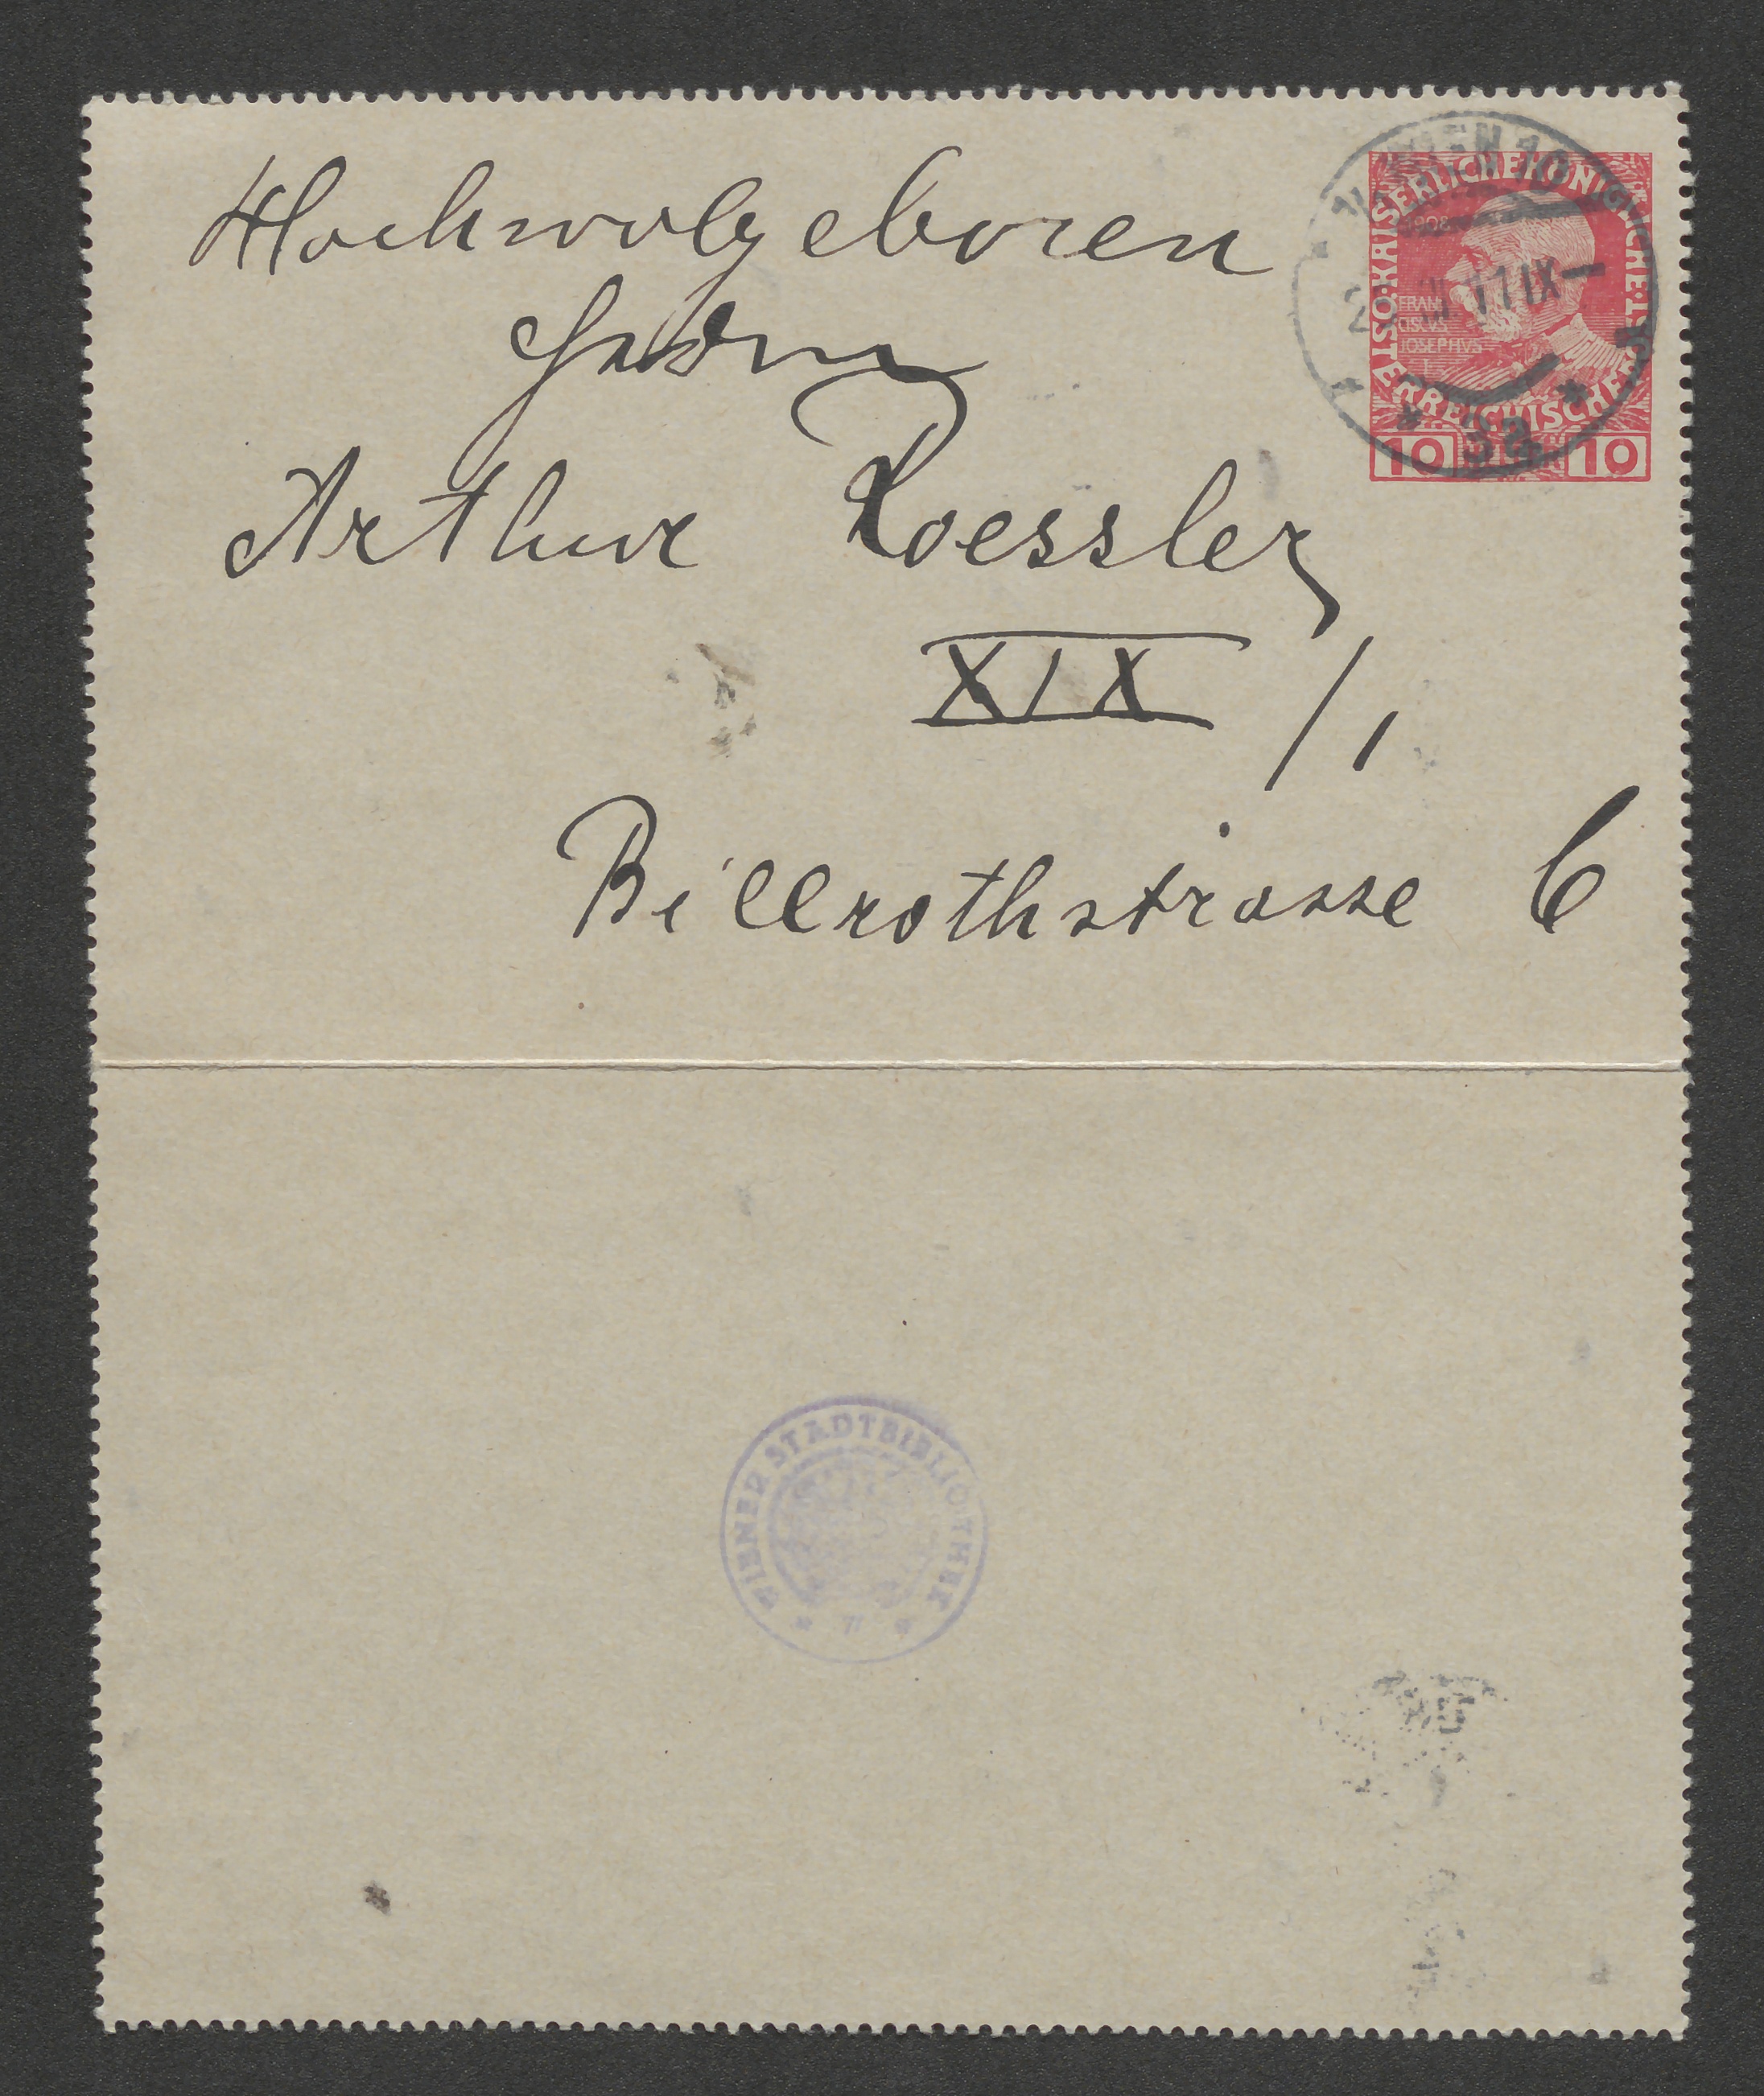 Hochwolgeboren
Herrn
Arthur Roessler
XIX/1
Billrothstrasse 6
WIEN
KAISERLICHE KÖNIGLICHE ÖSTERREICHISCHE POST
1908
FRANCISCVS
IOSEPHVS
10 10
WIENER STADTBIBLIOTHEK